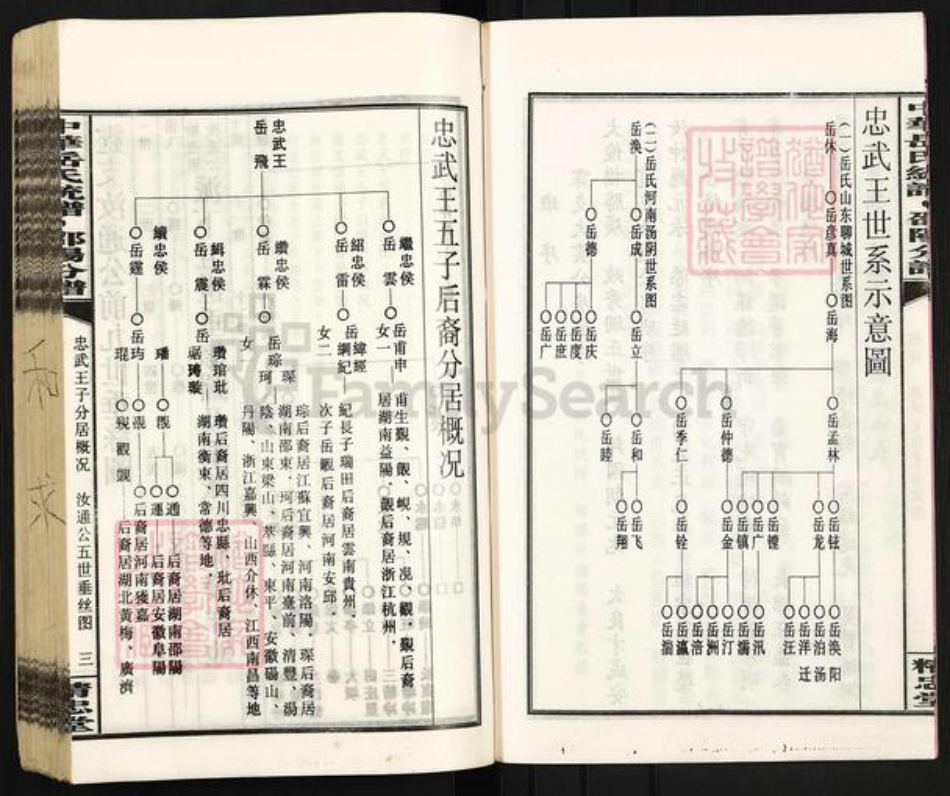 忠武王世系示意圖
(一)岳氏山东聊城世系图
岳休
岳彦真
岳海
岳孟林
岳仲德
岳季仁
岳铉
岳龙
岳镗
岳广
岳镇
岳金
岳铨
岳涣 阳
岳泊 汤
岳洋 迁
岳汪
岳汛
岳濡
岳汀
岳洲
岳涪
岳瀛
岳涠
(二)岳氏河南汤阴世系图
岳涣
岳成
岳德
岳立
岳庆
岳度
岳庶
岳广
岳和
岳睦
岳飞
岳翔
精忠堂
忠武王五子后裔分居概况
忠武王
岳飛
繼忠侯
岳雲
女一
岳甫申
甫生觐、覿、蚬、規、况、觀、覲后裔
居湖南益陽、覿后裔居浙江杭州。
紹忠侯
岳雷
女二
岳緯經綱紀
紀長子瑞田后裔居雲南貴州、
次子岳覿后裔居河南安邱。
纘忠侯
岳霖
女一
岳琮琛珂
琮后裔居江蘇宜興、河南洛陽。琛后裔居
湖南邵東。珂后裔居河南臺前、清豐、湯
陰、山東梁山、莘縣、東平、安徽碭山、
丹陽、浙江嘉興、山西介休、江西南昌等地
緝忠侯
岳震
瓚后裔居四川忠縣、玭后裔居
湖南衡東、常德等地。
續忠侯
岳霆
岳均
璠
琨
覬
通
運
后裔居湖南邵陽
后裔居安徽阜陽
后裔居河南獲嘉
后裔居湖北黄梅、廣濟
中華岳氏統譜
忠武王子分居概况
汝通公五世垂丝图
三
精忠堂
FamilySearch